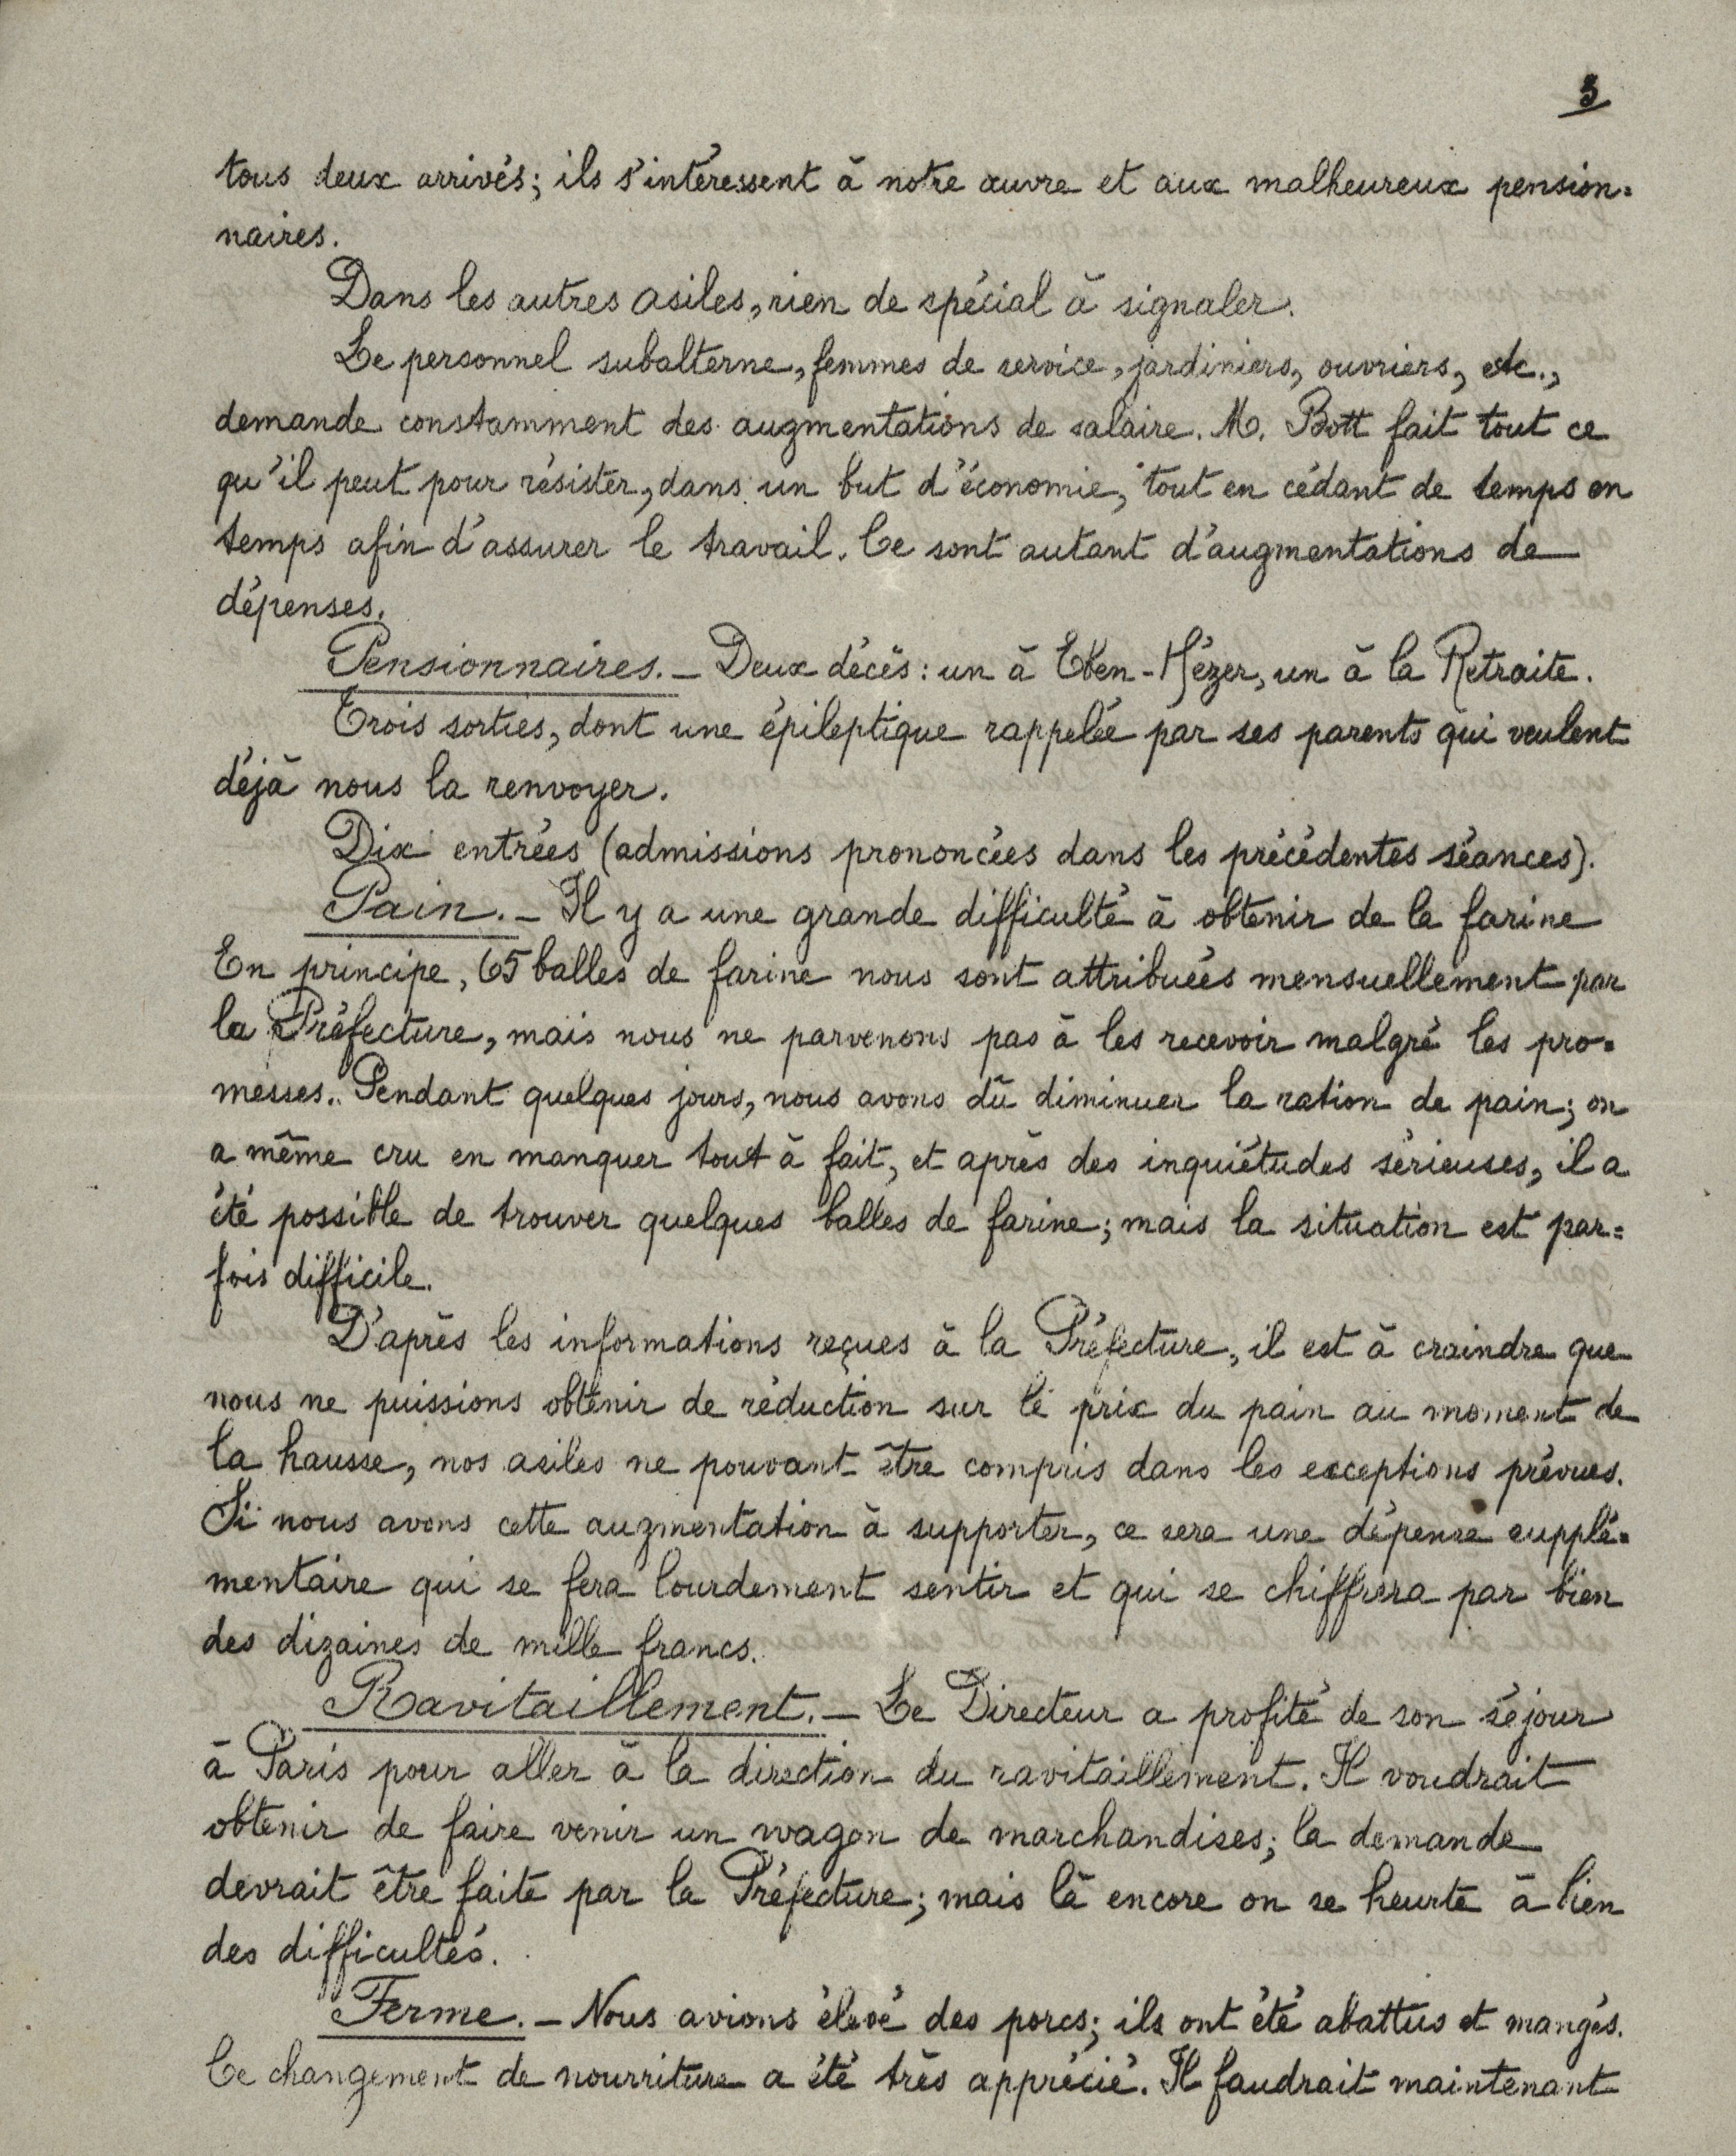 3
tous deux arrivés; ils s'intéressent à notre œuvre et aux malheureux pension=
naires.
Dans les autres asiles, rien de spécial à signaler.
Le personnel subalterne, femmes de service, jardiniers, ouvriers, etc.,
demande constamment des augmentations de salaire. M. Bott fait tout ce
qu'il peut pour résister, dans un but d'économie, tout en cédant de temps en
temps afin d'assurer le travail. Ce sont autant d'augmentations de
dépenses.
Pensionnaires. — Deux décès: un à Eben-Hézer, un à la Retraite.
Trois sorties, dont une épileptique rappelée par ses parents qui veulent
déjà nous la renvoyer.
Dix entrées (admissions prononcées dans les précédentes séances).
Pain. — Il y a une grande difficulté à obtenir de la farine
En principe, 65 balles de farine nous sont attribuées mensuellement par
la Préfecture, mais nous ne parvenons pas à les recevoir malgré les pro=
messes. Pendant quelques jours, nous avons dû diminuer la ration de pain; on
a même cru en manquer tout à fait, et après des inquiétudes sérieuses, il a
été possible de trouver quelques balles de farine; mais la situation est par=
fois difficile.
D'après les informations reçues à la Préfecture, il est à craindre que
nous ne puissions obtenir de réduction sur le prix du pain au moment de
la hausse, nos asiles ne pouvant être compris dans les exceptions prévues.
Si nous avons cette augmentation à supporter, ce sera une dépense supplé=
mentaire qui se fera lourdement sentir et qui se chiffrera par bien
des dizaines de mille francs.
Ravitaillement. — Le Directeur a profité de son séjour
à Paris pour aller à la direction du ravitaillement. Il voudrait
obtenir de faire venir un wagon de marchandises; la demande
devrait être faite par la Préfecture; mais là encore on se heurte à bien
des difficultés.
Ferme. — Nous avions élevé des porcs; ils ont été abattus et mangés.
Ce changement de nourriture a été très apprécié. Il faudrait maintenant